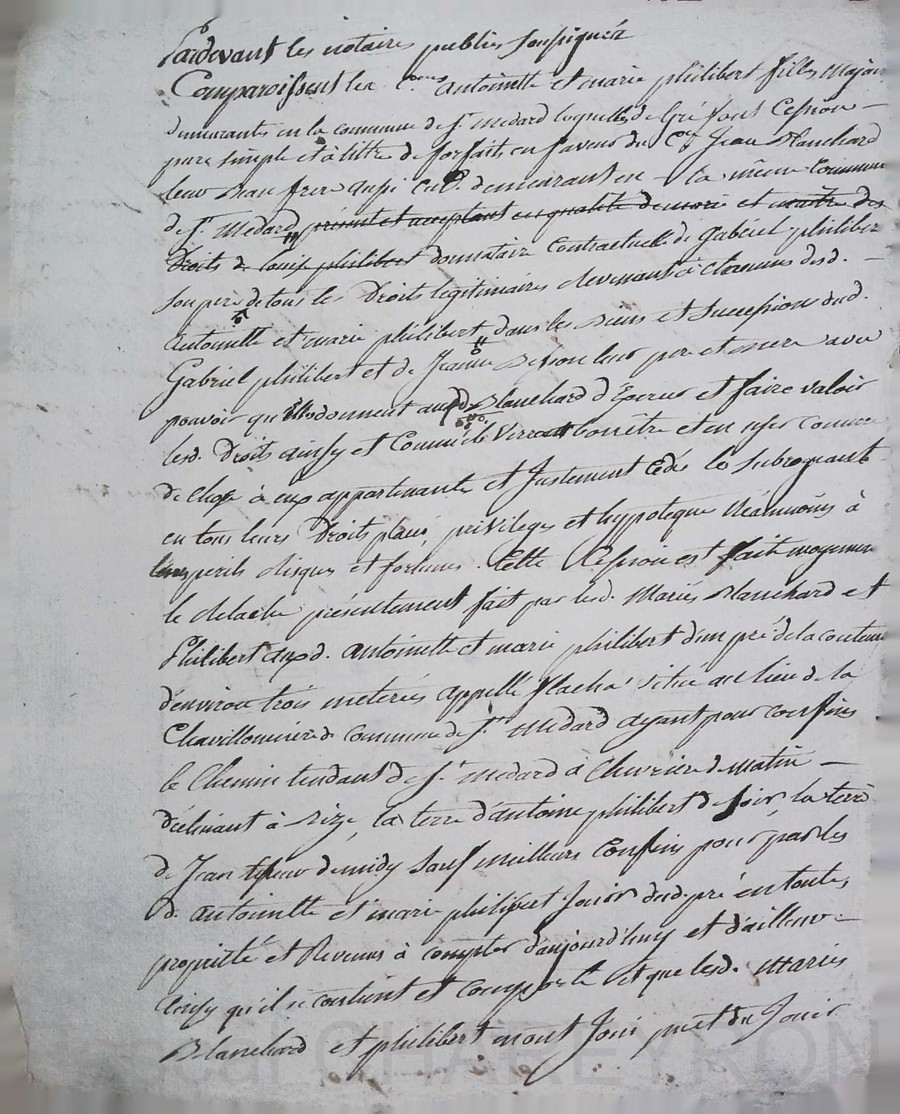 Pardevant les notaires publics soussignés
Comparoissent les C.ennes antoinette et marie philibert filles Majeures
demeurantes en la commune de S.t medard lesquelles de Gré font Cession —
pure simple et à tittre de forfaits en faveur du C.en Jean Blanchard
leur Beau frere aussi Cult. demeurant en — la même Commune
de S.t Medard present et acceptant en qualité de mari et maitre des
Droits de louise philibert donnataire Contractuelle de Gabriel philibert
son pere de tous les Droits legitimaires devenants à chacune desd. —
antoinette et marie philibert dans les Biens et succession dud.
Gabriel philibert et de Jeanne leur pere et mere avec
pouvoir qu'elles donnent aud. Blanchard d'Exercer et faire valoir
lesd. Droits ainsy et Comme il Verra bon être et en user comme
de chose à eux appartenante et Justement Cedés le subrogeant
en tous leurs Droits places privileges et hypoteque Néanmoins à
leurs perils risques et fortunes. Cette Cession est fait moyennant
le relache présentement fait par lesd. Mariés Blanchard et
Philibert auxd. antoinette et marie philibert d'un pré de la contenue
d'environ trois meterées appellé flacha situé au lieu de la
Chavillonniere Commune de S.t Medard ayant pour confins
le Chemin tendant de S.t medard à Chevrier de matin —
déclinant à bize, la terre d'antoine philibert de soir, la terre
de Jean de midy sauf meilleurs Confins pour par les
d. antoinette et marie philibert Jouir dud pré en toute
propriétté et Revenus à compter d'aujourd'huy et d'ailleur —
ainsy qu'il se contient et comporte et que lesd. Mariés
Blanchard et philibert en ont Joui put du Jouir